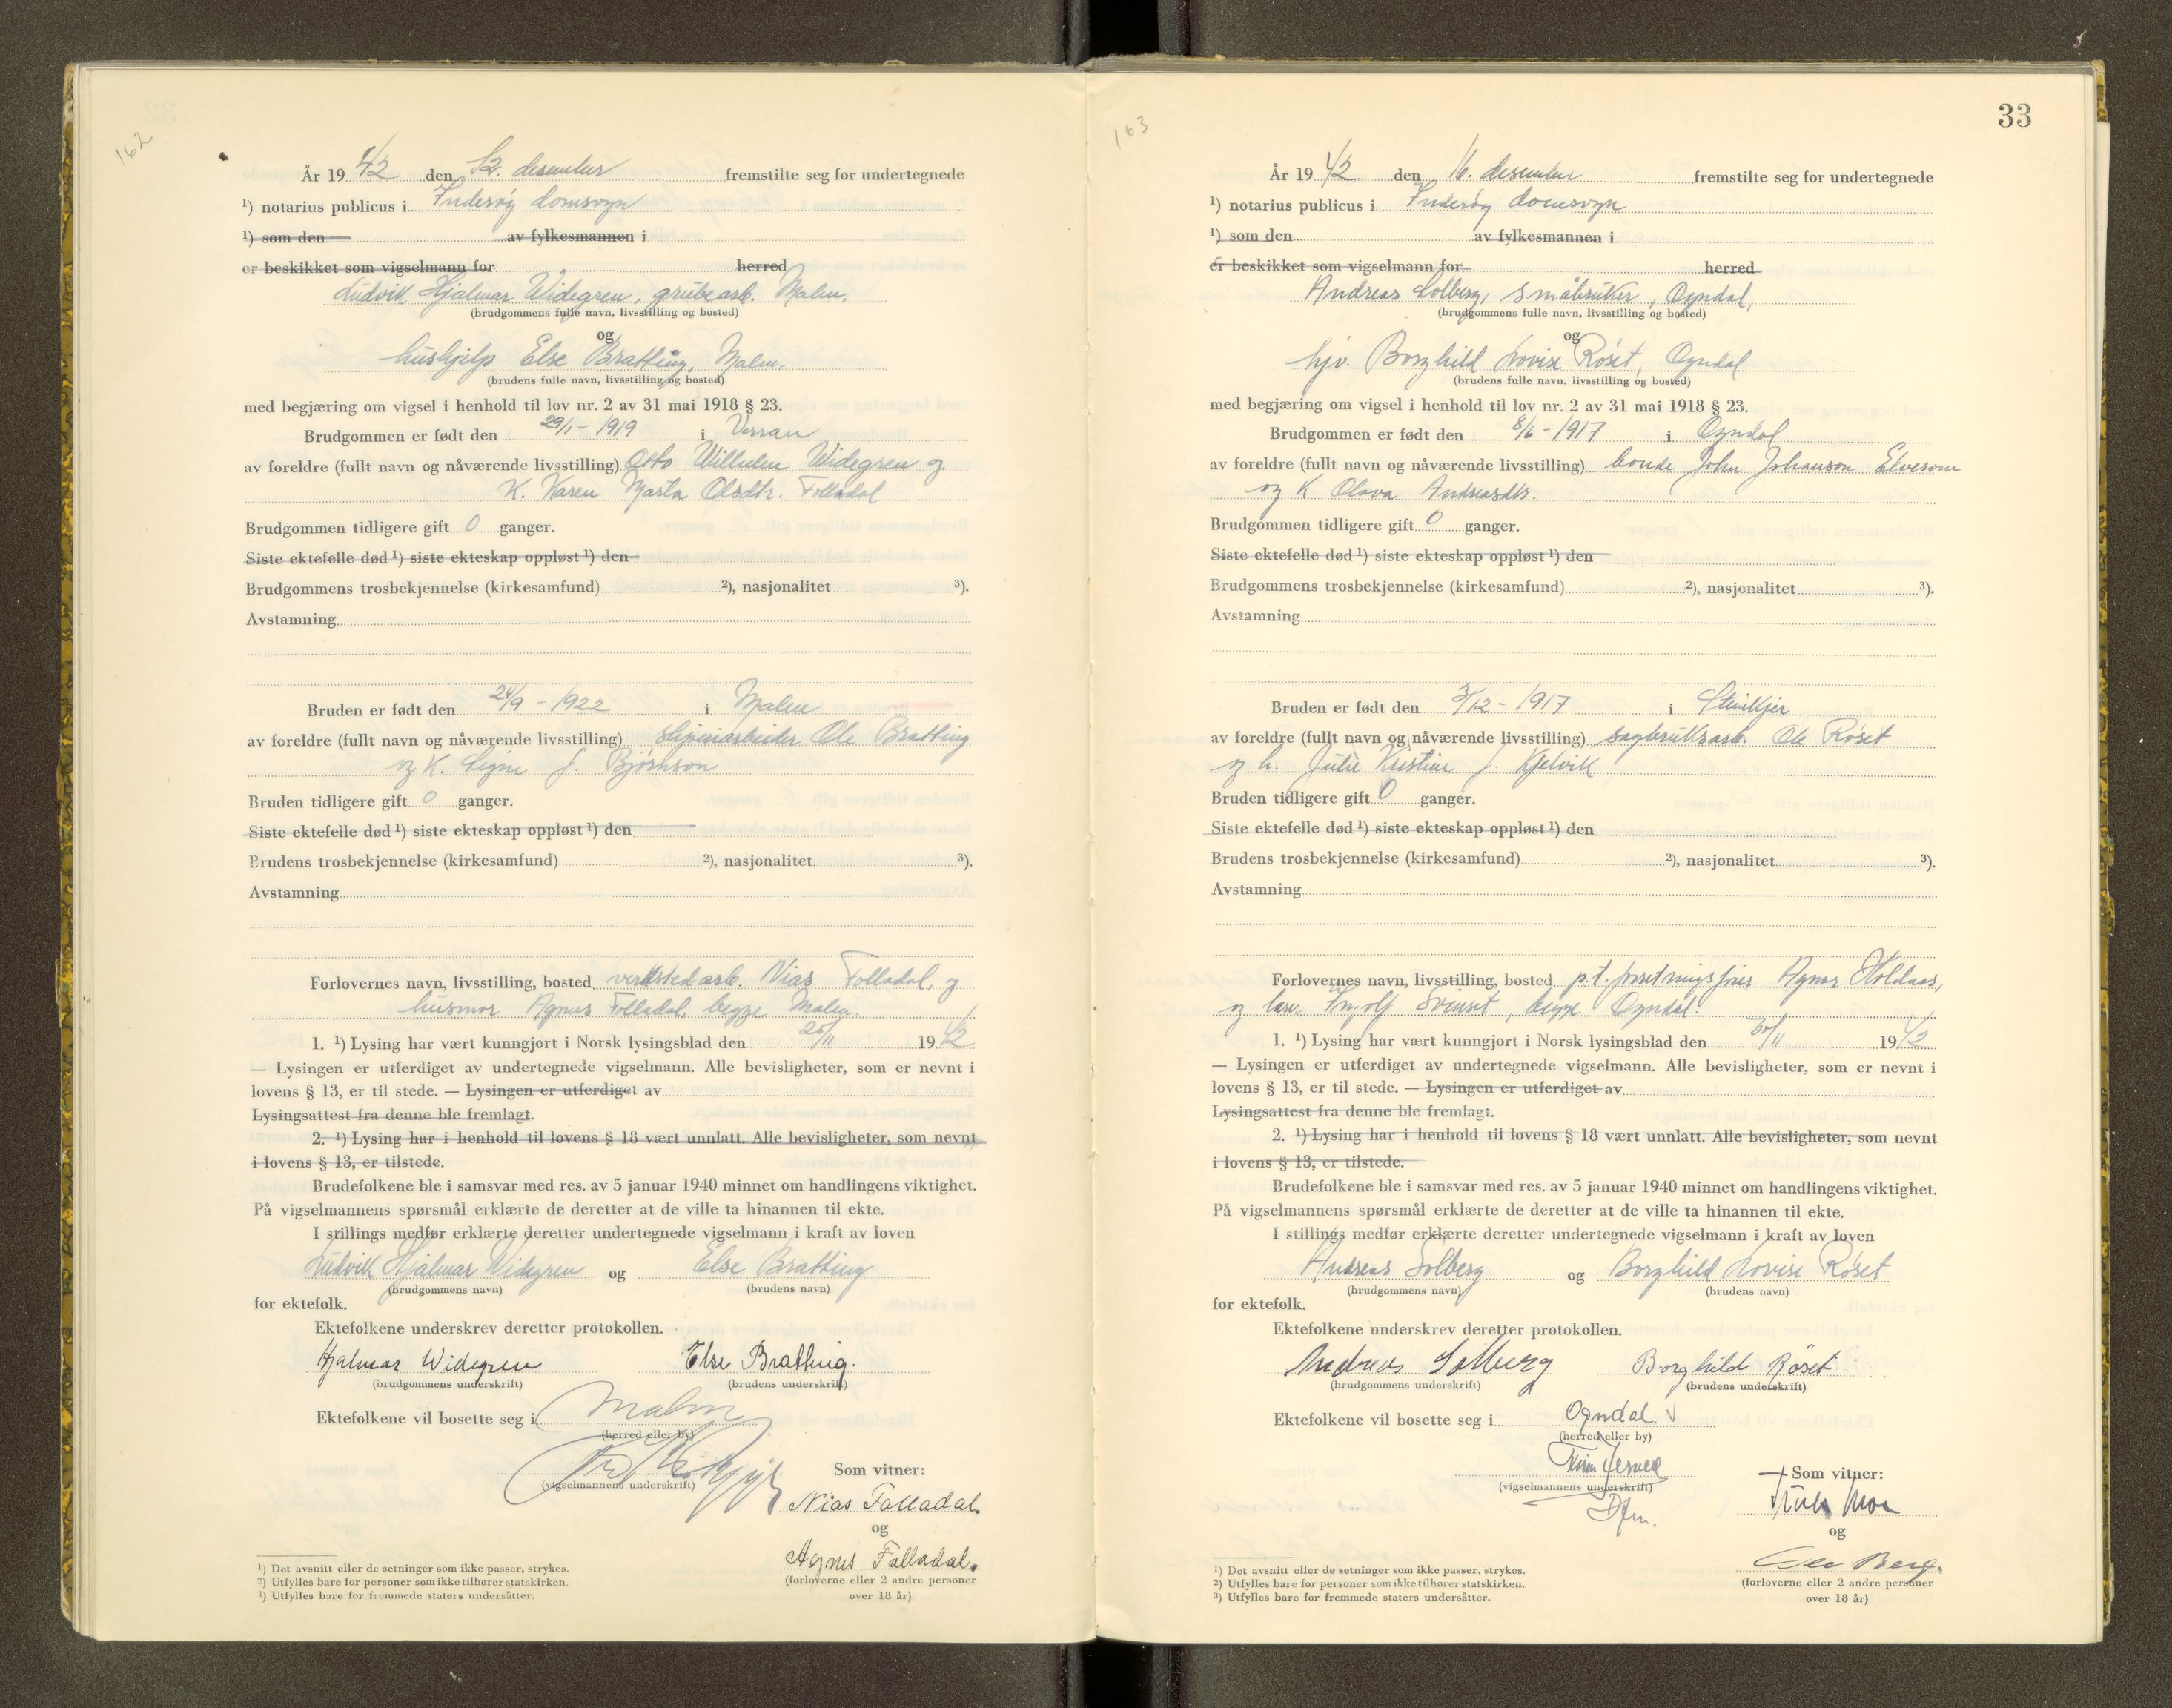 162
År 19 42 den 12. desember fremstilte seg for undertegnede
¹) notarius publicus i Inderøy domsogn
¹) som den av fylkesmannen i
er beskikket som vigselmann for herred
Ludvik Hjalmar Widegren, grubearb. Malm,
(brudgommens fulle navn, livsstilling og bosted)
og
hushjelp Else Bratting, Malm,
(brudens fulle navn, livsstilling og bosted)
med begjæring om vigsel i henhold til lov nr. 2 av 31 mai 1918 § 23.
Brudgommen er født den 29/1 - 1919 i Verran
av foreldre (fullt navn og nåværende livsstilling) Otto Wilhelm Widegren og
K. Karen Marta Olsdtr. Folladal
Brudgommen tidligere gift 0 ganger.
Siste ektefelle død ¹) siste ekteskap oppløst ¹) den
Brudgommens trosbekjennelse (kirkesamfund) ²), nasjonalitet ³).
Avstamning
Bruden er født den 24/9 - 1922 i Malm
av foreldre (fullt navn og nåværende livsstilling) sliperiarbeider Ole Bratting
og K. Signe J. Bjørnson
Bruden tidligere gift 0 ganger.
Siste ektefelle død ¹) siste ekteskap oppløst ¹) den
Brudens trosbekjennelse (kirkesamfund) ²), nasjonalitet ³).
Avstamning
Forlovernes navn, livsstilling, bosted verkstedarb. Nias Folladal, og
husmor Agnus Folladal, begge Malm.
1. ¹) Lysing har vært kunngjort i Norsk lysingsblad den 25/11 19 42
— Lysingen er utferdiget av undertegnede vigselmann. Alle bevisligheter, som er nevnt i
lovens § 13, er til stede. — Lysingen er utferdiget av
Lysingsattest fra denne ble fremlagt.
2. ¹) Lysing har i henhold til lovens § 18 vært unnlatt. Alle bevisligheter, som nevnt
i lovens § 13, er tilstede.
Brudefolkene ble i samsvar med res. av 5 januar 1940 minnet om handlingens viktighet.
På vigselmannens spørsmål erklærte de deretter at de ville ta hinannen til ekte.
I stillings medfør erklærte deretter undertegnede vigselmann i kraft av loven
Ludvik Hjalmar Widegren og Else Bratting
(brudgommens navn) (brudens navn)
for ektefolk.
Ektefolkene underskrev deretter protokollen.
Hjalmar Widegren Else Bratting.
(brudgommens underskrift) (brudens underskrift)
Ektefolkene vil bosette seg i Malm
(herred eller by)
(vigselmannens underskrift)
Som vitner:
Nias Folladal.
og
Agnus Folladal.
(forloverne eller 2 andre personer
over 18 år)
¹) Det avsnitt eller de setninger som ikke passer, strykes.
²) Utfylles bare for personer som ikke tilhører statskirken.
³) Utfylles bare for fremmede staters undersåtter.
163
33
År 19 42 den 16. desember fremstilte seg for undertegnede
¹) notarius publicus i Inderøy domsogn
¹) som den av fylkesmannen i
er beskikket som vigselmann for herred
Andreas Solberg, småbruker, Ogndal,
(brudgommens fulle navn, livsstilling og bosted)
og
hjv. Borghild Lovise Røset, Ogndal
(brudens fulle navn, livsstilling og bosted)
med begjæring om vigsel i henhold til lov nr. 2 av 31 mai 1918 § 23.
Brudgommen er født den 8/6 - 1917 i Ogndal
av foreldre (fullt navn og nåværende livsstilling) bonde John Johanson Elverum
og K Olava Andreasdtr.
Brudgommen tidligere gift 0 ganger.
Siste ektefelle død ¹) siste ekteskap oppløst ¹) den
Brudgommens trosbekjennelse (kirkesamfund) ²), nasjonalitet ³).
Avstamning
Bruden er født den 3/12 - 1917 i Steinkjer
av foreldre (fullt navn og nåværende livsstilling) sagbruksarb. Ole Røset
og h. Julie Kristine J. Kjelvik
Bruden tidligere gift 0 ganger.
Siste ektefelle død ¹) siste ekteskap oppløst ¹) den
Brudens trosbekjennelse (kirkesamfund) ²), nasjonalitet ³).
Avstamning
Forlovernes navn, livsstilling, bosted p.t. forretningsfører Agnar Holdaas,
og Ingolf begge Ogndal.
1. ¹) Lysing har vært kunngjort i Norsk lysingsblad den 30/11 19 42
— Lysingen er utferdiget av undertegnede vigselmann. Alle bevisligheter, som er nevnt i
lovens § 13, er til stede. — Lysingen er utferdiget av
Lysingsattest fra denne ble fremlagt.
2. ¹) Lysing har i henhold til lovens § 18 vært unnlatt. Alle bevisligheter, som nevnt
i lovens § 13, er tilstede.
Brudefolkene ble i samsvar med res. av 5 januar 1940 minnet om handlingens viktighet.
På vigselmannens spørsmål erklærte de deretter at de ville ta hinannen til ekte.
I stillings medfør erklærte deretter undertegnede vigselmann i kraft av loven
Andreas Solberg og Borghild Lovise Røset
(brudgommens navn) (brudens navn)
for ektefolk.
Ektefolkene underskrev deretter protokollen.
Andreas Solberg Borghild Røset
(brudgommens underskrift) (brudens underskrift)
Ektefolkene vil bosette seg i Ogndal
(herred eller by)
(vigselmannens underskrift)
Dfm.
Som vitner:
Moe
og
Berg.
(forloverne eller 2 andre personer
over 18 år)
¹) Det avsnitt eller de setninger som ikke passer, strykes.
²) Utfylles bare for personer som ikke tilhører statskirken.
³) Utfylles bare for fremmede staters undersåtter.